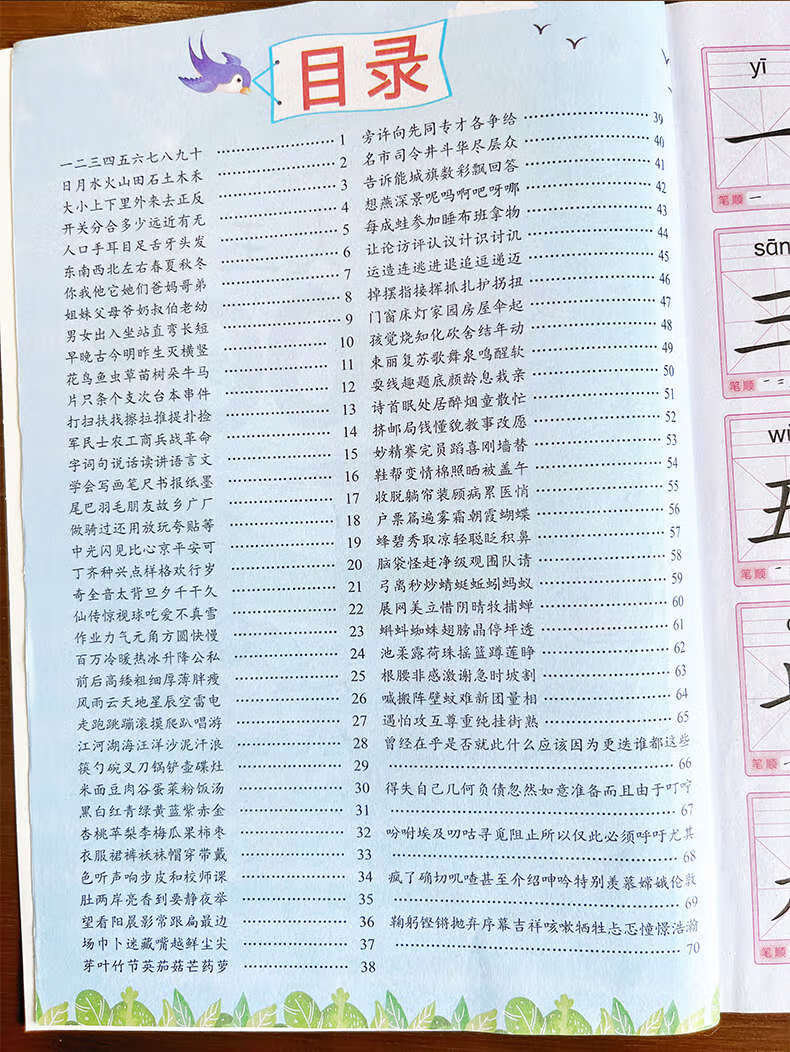 目录
一二三四五六七八九十 1
日月水火山田石土木禾 2
大小上下里外来去正反 3
开关分合多少远近有无 4
人口手耳目足舌牙头发 5
东南西北左右春夏秋冬 6
你我他它她们爸妈哥弟 7
姐妹父母爷奶叔伯老幼 8
男女出入坐站直弯长短 9
早晚古今明昨生灭横竖 10
花鸟鱼虫草苗树朵牛马 11
片只条个支次台本串件 12
打扫扶找擦拉推提扑捡 13
军民士农工商兵战革命 14
字词句说话读讲语言文 15
学会写画笔尺书报纸墨 16
尾巴羽毛朋友故乡广厂 17
做骑过还用放玩夸贴等 18
中光闪见比心京平安可 19
丁齐种兴点样格欢行岁 20
奇全音太背旦夕千干久 21
仙传惊视球吃爱不真雪 22
作业力气元角方圆快慢 23
百万冷暖热冰升降公私 24
前后高矮粗细厚薄胖瘦 25
风雨云天地星辰空雷电 26
走跑跳蹦滚摸爬趴唱游 27
江河湖海汪洋沙泥汗浪 28
筷勺碗叉刀锅铲壶碟灶 29
米面豆肉谷蛋菜粉饭汤 30
黑白红青绿黄蓝紫赤金 31
杏桃苹梨李梅瓜果柿枣 32
衣服裙裤袄袜帽穿带戴 33
色听声响步皮和校师课 34
肚两岸亮香到要静夜举 35
望看阳晨影常跟扁最边 36
场巾卜迷藏嘴越鲜尘尖 37
芽叶竹节英茄菇芒药萝 38
旁许向先同专才各争给 39
名市司令井斗华尽层众 40
告诉能城旗数彩飘回答 41
想燕深景呢吗啊吧呀哪 42
每成蛙参加睡布班拿物 43
让论访评认议计识讨讥 44
运造连逃进退追逗递迈 45
掉摆指接挥抓扎护拐扭 46
门窗床灯家园房屋伞起 47
孩觉烧知化砍舍结年动 48
束丽复苏歌舞泉鸣醒软 49
耍线趣题底颜龄息栽亲 50
诗首眠处居醉烟童散忙 51
挤邮局钱懂貌教事改愿 52
妙精赛完员蹈喜刚墙替 53
鞋帮变情棉照晒被盖午 54
收脱躺帘装顾病累医悄 55
户票篇遍雾霜朝霞蝴蝶 56
蜂碧秀取凉轻聪眨积鼻 57
脑袋怪赶净级观围队请 58
弓离秒炒蜻蜓蚯蚓蚂蚁 59
展网美立惜阴晴牧捕蝉 60
蝌蚪蜘蛛翅膀晶停坪透 61
池柔露荷珠摇篮蹲莲睁 62
根腰非感激谢急时坡割 63
喊搬阵壁蚊难新团量相 64
遇怕攻互尊重纯挂街熟 65
曾经在乎是否就此什么应该因为更迭谁都这些
66
得失自己几何负债忽然如意准备而且由于叮咛
67
吩咐埃及叨咕寻觅阻止所以仅此必须呼吁尤其
68
疯了确切叽喳甚至介绍呻吟特别羡慕嫦娥伦敦
69
鞠躬铿锵抛弃序幕吉祥咳嗽牺牲忐忑憧憬浩瀚
70
yī
笔顺
笔顺
笔顺
笔顺
笔顺